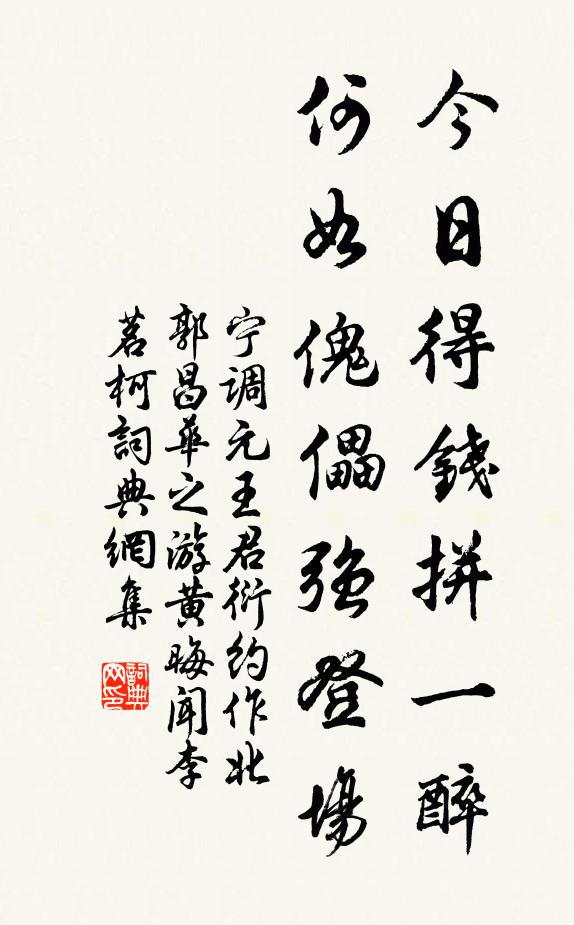 今日得錢拼一醉
何如傀儡強登場
宁調元王君衍約作北
郭昌華之游黃晦闻李
茗柯詞典網集
詞典
网印